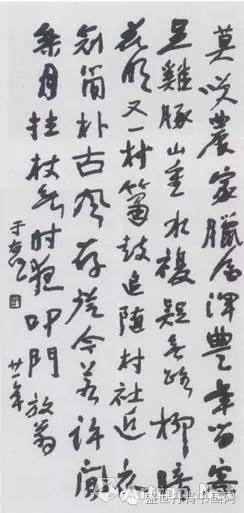 莫咲農家臘酒渾豐年留客
足雞豚山重水複疑無路柳暗
花明又一村簫鼓追隨村社近衣
冠簡朴古風存從今若許閒
乘月拄杖無時夜叩門放翁
于右任
盛世丹青书画网